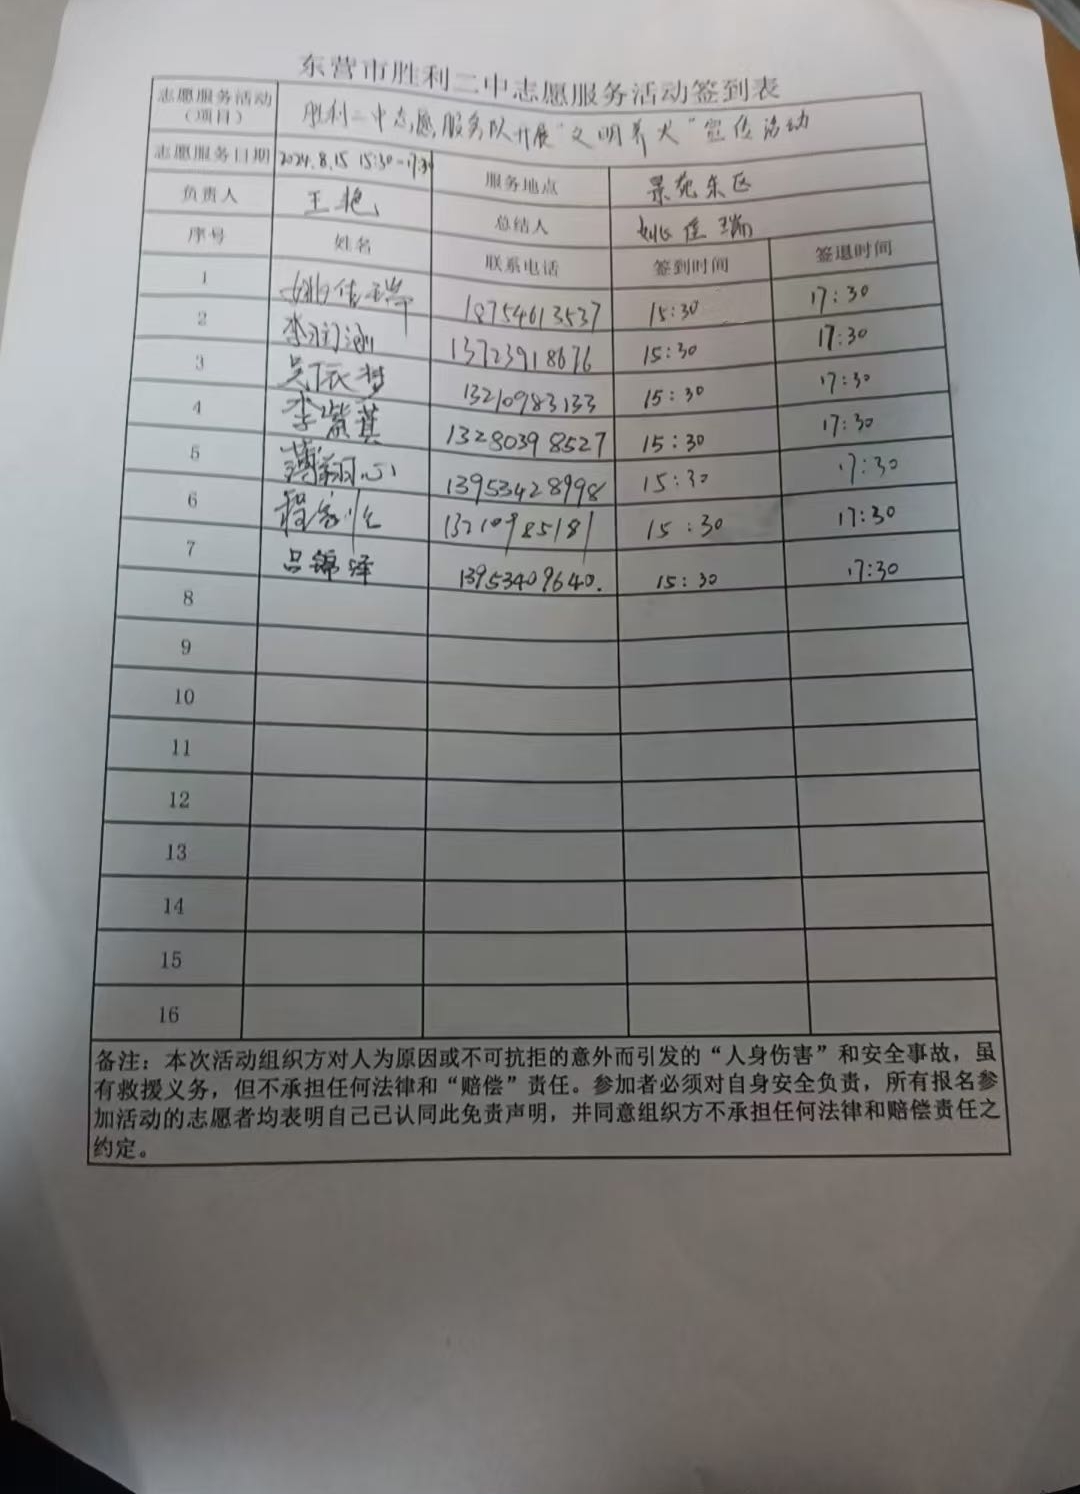 东营市胜利二中志愿服务活动签到表
志愿服务活动（项目） 胜利二中志愿服务队开展“文明养犬”宣传活动
志愿服务日期 2024.8.15 15:30-17:30 服务地点 景苑东区
负责人 王艳 总结人 姚佳瑞
序号 姓名 联系电话 签到时间 签退时间
1 姚佳瑞 18754613537 15:30 17:30
2 李润涵 13723918676 15:30 17:30
3 吴依梦 13210983133 15:30 17:30
4 李紫萁 13280398527 15:30 17:30
5 薄翔心 13953428998 15:30 17:30
6 程家 15:30 17:30
7 吕锦泽 13953409640. 15:30 17:30
8
9
10
11
12
13
14
15
16
备注：本次活动组织方对人为原因或不可抗拒的意外而引发的“人身伤害”和安全事故，虽
有救援义务，但不承担任何法律和“赔偿”责任。参加者必须对自身安全负责，所有报名参
加活动的志愿者均表明自己已认同此免责声明，并同意组织方不承担任何法律和赔偿责任之
约定。